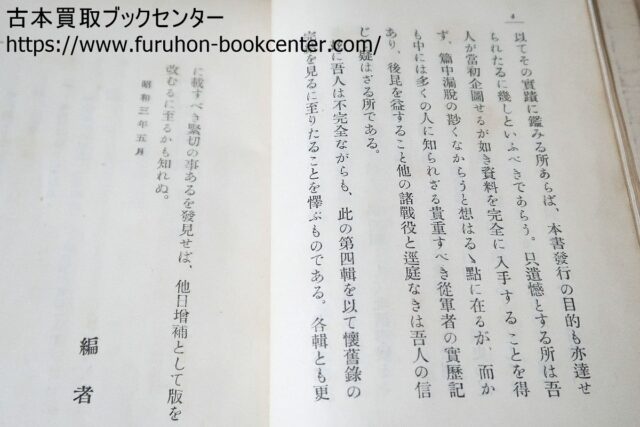 古本買取ブックセンター
https://www.furuhon-bookcenter.com/
4
以てその實蹟に鑑みる所あらば、本書發行の目的も亦達せ
られたるに幾しといふべきであらう。只遺憾とする所は吾
人が當初企圖せるが如き資料を完全に入手することを得
ず、篇中漏脱の尠くなからうと想はるゝ點に在るが、而か
も中には多くの人に知られざる貴重すべき從軍者の實歷記
あり、後昆を益すること他の諸戰役と逕庭なきは吾人の信
じて疑はざる所である。
に吾人は不完全ながらも、此の第四輯を以て懷舊錄の
を見るに至りたることを懌ぶものである。各輯とも更
に載すべき緊切の事あるを發見せば、他日增補として版を
改むるに至るかも知れぬ。
昭和三年五月
編者